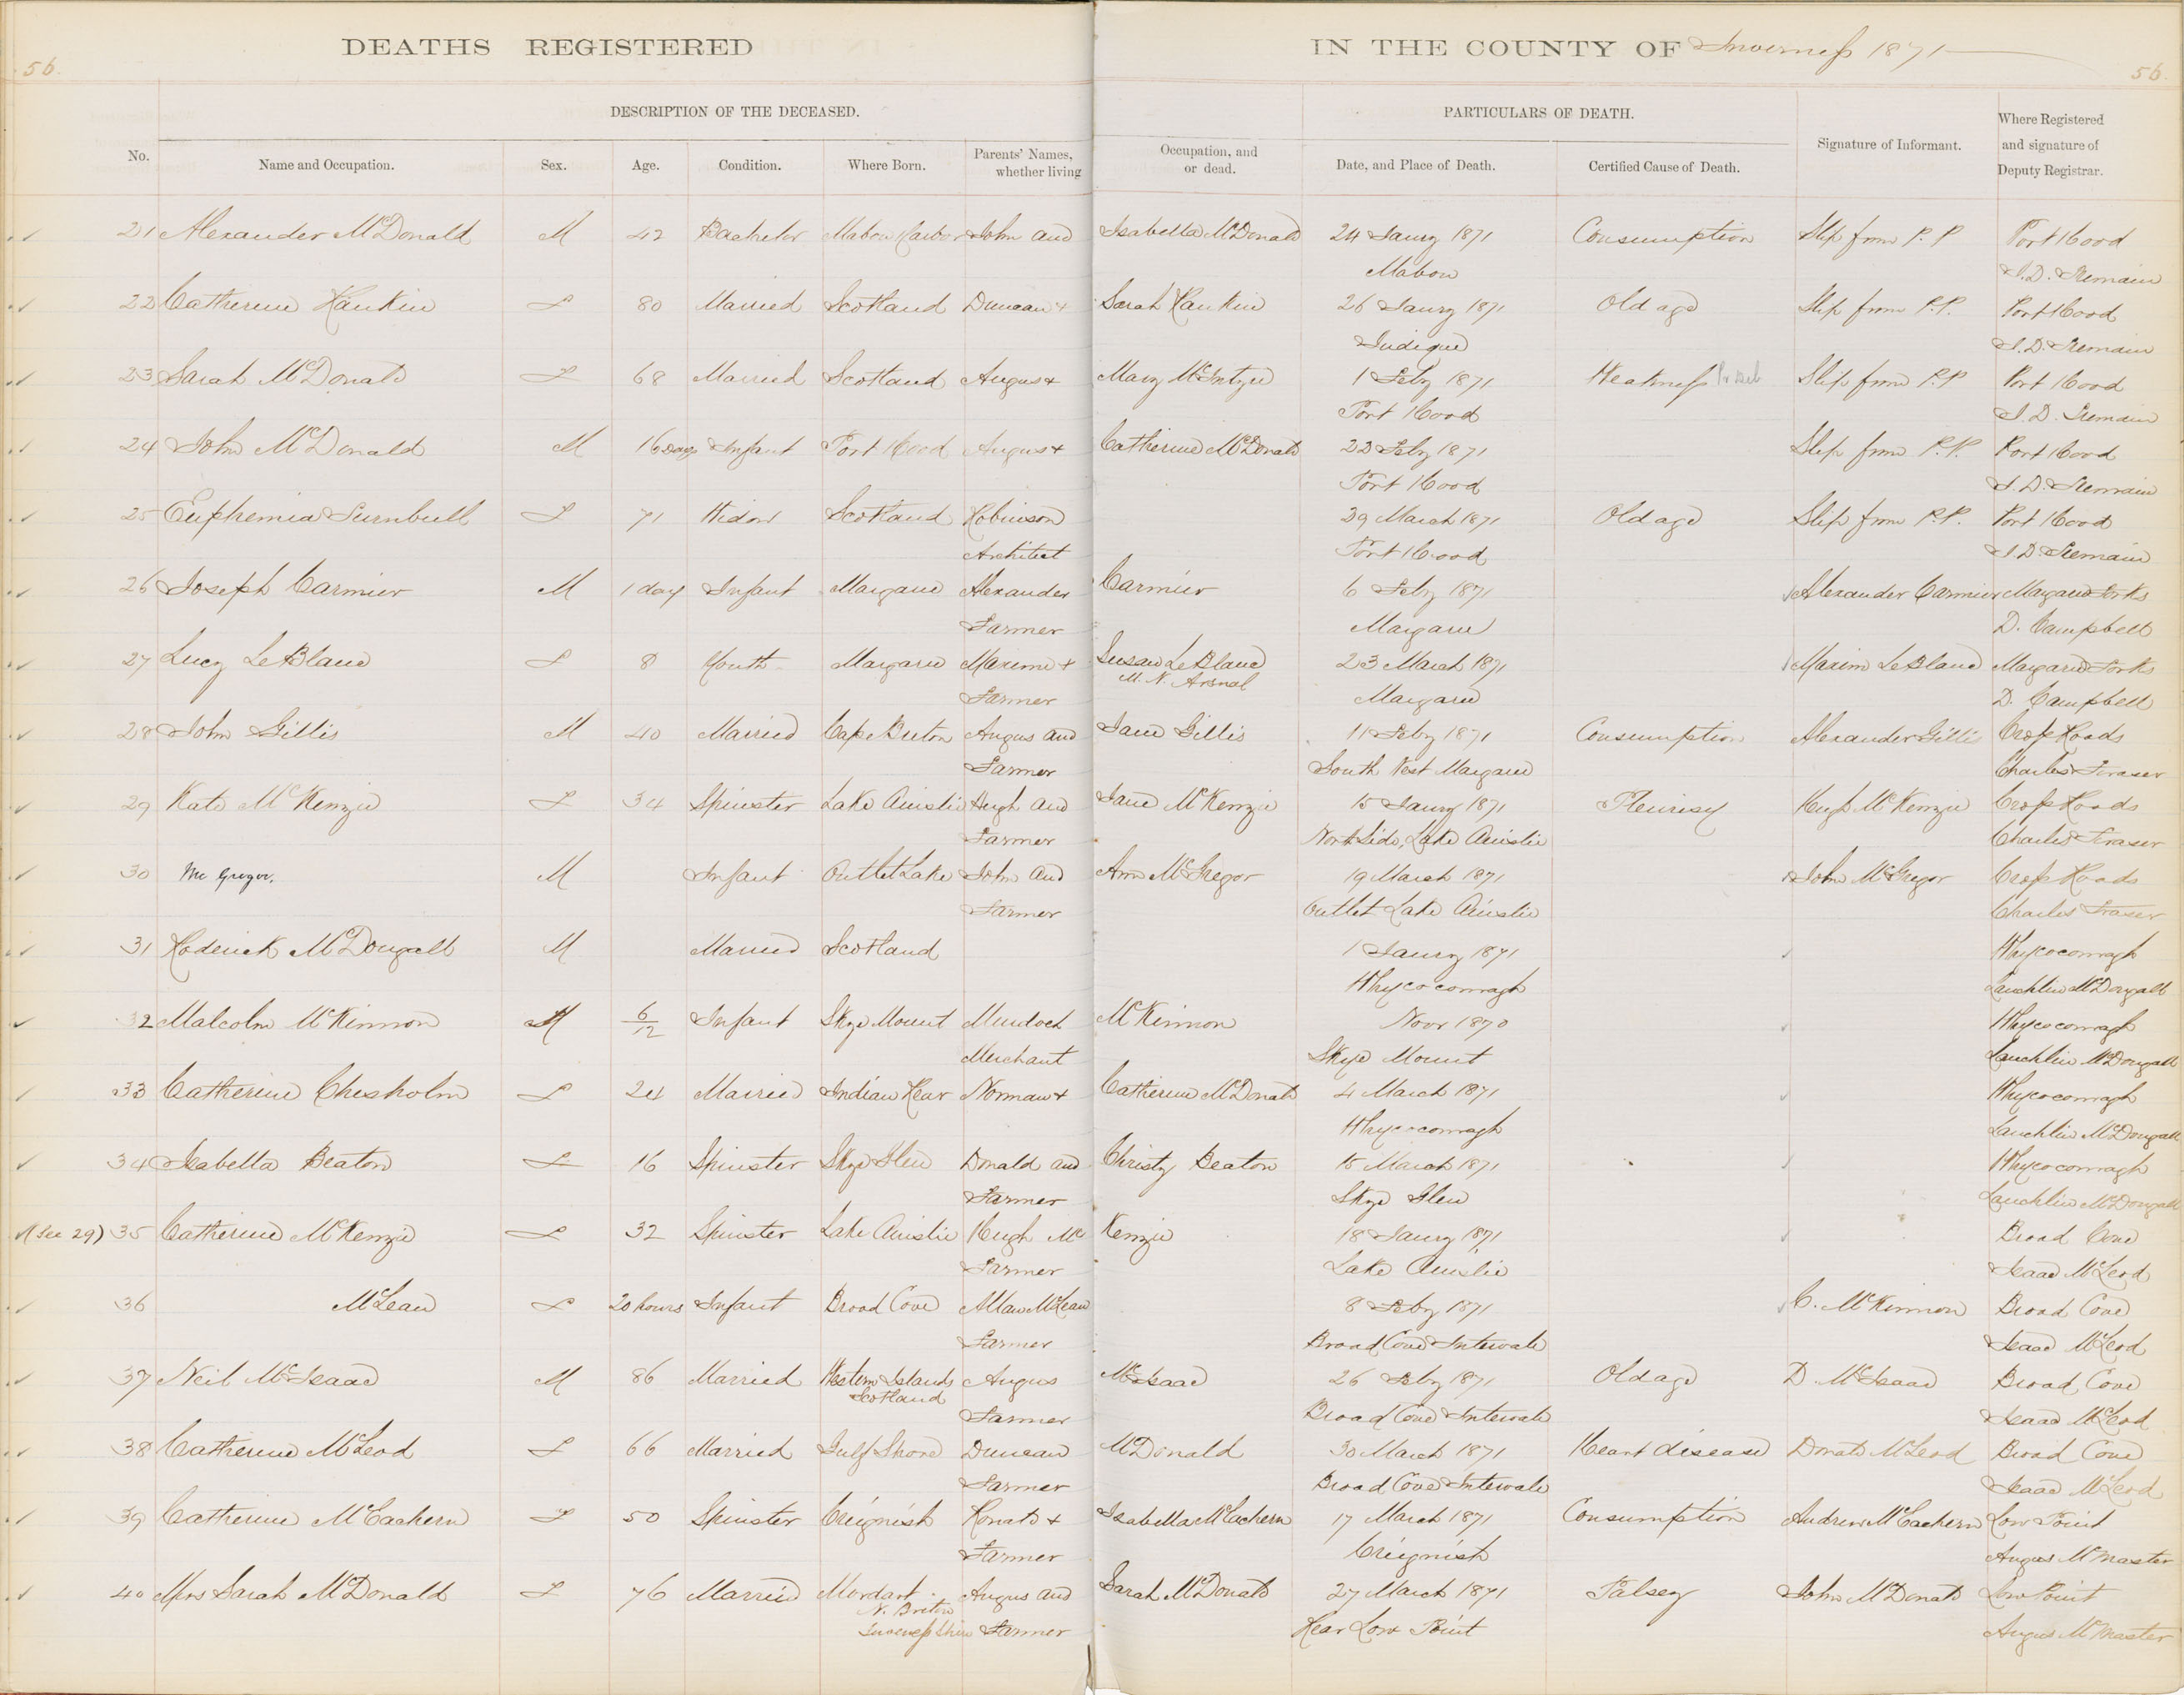 DEATHS REGISTERED IN THE COUNTY OF Inverness 1871
56. 56.
DESCRIPTION OF THE DECEASED. PARTICULARS OF DEATH.
No. Name and Occupation. Sex. Age. Condition. Where Born. Parents' Names, whether living Occupation, and or dead. Date, and Place of Death. Certified Cause of Death. Signature of Informant. Where Registered and signature of Deputy Registrar.
21 Alexander McDonald M 42 Bachelor Mabou Harbor John and Isabella McDonald 24 Janry 1871 Consumption Slip from P.P Port Hood
Mabou J.D. Tremain
22 Catherine Rankin F 80 Married Scotland Duncan + Sarah Rankin 26 Janry 1871 Old age Slip from P.P. Port Hood
Judique J.D. Tremain
23 Sarah McDonald F 68 Married Scotland Angus + Mary McIntyre 1 Feby 1871 Weakness Slip from P.P Port Hood
Port Hood J.D. Tremain
24 John McDonald M 16 Days Infant Port Hood Angus + Catherine McDonald 22 Feby 1871 Slip from P.P. Port Hood
Port Hood J.D. Tremain
25 Euphemia Turnbull F 71 Widow Scotland Robinson 29 March 1871 Old age Slip from P.P. Port Hood
Architect Port Hood J.D. Tremain
26 Joseph Carmier M 1 day Infant Margaree Alexander Carmier 6 Feby 1871 Alexander Carmier Margaree Forks
Farmer Margaree D. Campbell
27 Lucy LeBlanc F 8 Youth Margaree Maxime + Susan LeBlanc 23 March 1871 Maxim LeBlanc Margaree Forks
M. N. Arsnal
Farmer Margaree D. Campbell
28 John Gillis M 40 Married Cape Breton Angus and Jane Gillis 11 Feby 1871 Consumption Alexander Gillis Cross Roads
Farmer South West Margaree Charles Fraser
29 Kate McKenzie F 34 Spinster Lake Ainslie Hugh and Jane McKenzie 15 Janry 1871 Pleurisy Hugh McKenzie Cross Roads
Farmer North Side, Lake Ainslie Charles Fraser
30 Mc Gregor. M Infant Outlet Lake John and Ann McGregor 19 March 1871 John McGregor Cross Roads
Farmer Outlet Lake Ainslie Charles Fraser
31 Roderick McDougall M Married Scotland 1 Janry 1871 Whycocomagh
Whycocomagh Lauchlin McDougall
32 Malcolm McKinnon M 6/12 Infant Skye Mount Murdoch McKinnon Novr 1870 Whycocomagh
Merchant Skye Mount Lauchlin McDougall
33 Catherine Chesholm F 24 Married Indian Rear Norman + Catherine McDonald 4 March 1871 Whycocomagh
Whycocomagh Lauchlin McDougall
34 Isabella Beaton F 16 Spinster Skye Glen Donald and Christy Beaton 15 March 1871 Whycocomagh
Farmer Skye Glen Lauchlin McDougall
(See 29) 35 Catherine McKenzie F 32 Spinster Lake Ainslie Hugh Mc Kenzie 18 Janry 1871 Broad Cove
Farmer Lake Ainslie Isaac McLeod
36 McLean F 20 hours Infant Broad Cove Allan McLean 8 Feby 1871 C. McKinnon Broad Cove
Farmer Broad Cove Intervale Isaac McLeod
37 Neil McIsaac M 86 Married Western Islands Angus McIsaac 26 Feby 1871 Old age D. McIsaac Broad Cove
Scotland
Farmer Broad Cove Intervale Isaac McLeod
38 Catherine McLeod F 66 Married Gulf Shore Duncan McDonald 30 March 1871 Heart disease Donald McLeod Broad Cove
Farmer Broad Cove Intervale Isaac McLeod
39 Catherine McEachern F 50 Spinster Creignish Ronald + Isabella McEachern 17 March 1871 Consumption Andrew McEachern Low Point
Farmer Creignish Angus McMaster
40 Mrs Sarah McDonald F 76 Married Mordart Angus and Sarah McDonald 27 March 1871 Palsey John McDonald Low Point
N. Briton
Inverness Shire Farmer Rear Low Point Angus McMaster